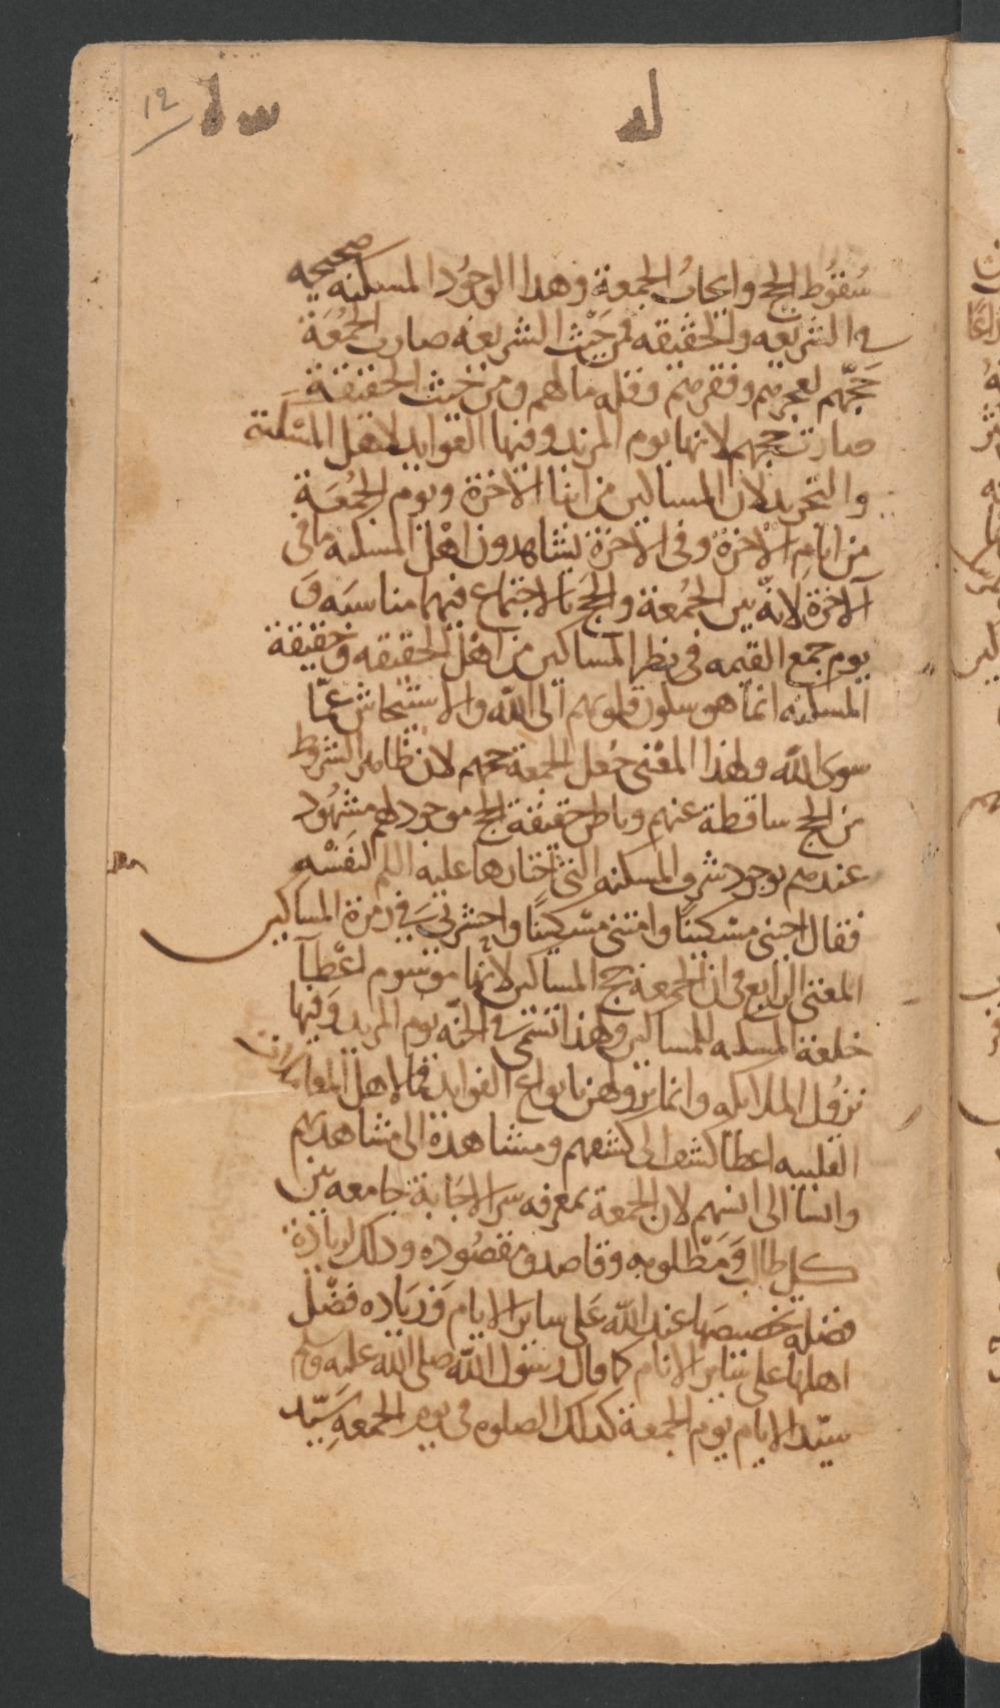 12
سُقوُط الحج وايجابُ الجمعة وهذا الوجُود المسكنه صحيحه
في الشريعه والحقيقه فمن حَيْث الشريعه صارت الجمُعَة
حَجّهم لعجزهم وفقرهم وقله مالهم ومن حيث الحقيقة
صارت حجهم لانها يوم المزيد وفيها الفوايد لاهل المسْكنة
والتجريد لان المساكين من ابنا الاخرة ويوم الجمُعَة
من ايام الاخرة وفى الاخرة يشاهدون اهل المسكنه ما في
الاخرة لانهّ بين الجمُعة والحَج بالاجتماع فيهما مناسبَه وَ
يوم جمع القيمه في نظر المساكين من اهْل الحقيقه وحقيقة
المسكنه انما هو سكون قلوبهم الى الله والاستيحاش عمّا
سوى الله ولهذا المعْنى جُعل الجمعة حجهم لان ظاهر الشروط
من الحج ساقطة عنهم وباطن حقيقة الحج موجود لهم مشهُود
عندهم بوجود شرف المسكنه التي اختارها عليه السلم لنفسْه
فقال احينى مسْكينًا وامتنى مسْكينًا واحشرني في زمرة المساكين
المعْنى الرابع فى ان الجمعة حج المساكين لانها موسُوم لعْطآ
خلعة المسكنه للمساكين ولهذا تسَمّى في الجنّه يوم المزيد وَفيها
نزوُل الملايكه وانما نزولهن بانواع الفوايد لاهل المعاملات
القلبيه اعطا كشف الى كشفهم ومشاهدة الى مشاهدتهم
وانسا الى انسهم لان الجمعة بمعرفه سر الاجَابة جامعه بين
كل طالب وَمَطْلوبه وقاصد ومقصُوده وذلك لزيادة
فضله تخصيصَها عند الله عَلى ساير الايام وَزيَاده فضْل
اهلها على سَاير الانام كما قال رسُول الله صلى الله عليه وسلم
سيّد الايام يوم الجمعة كذلك الصلوه في يوم الجمعه سَيّد